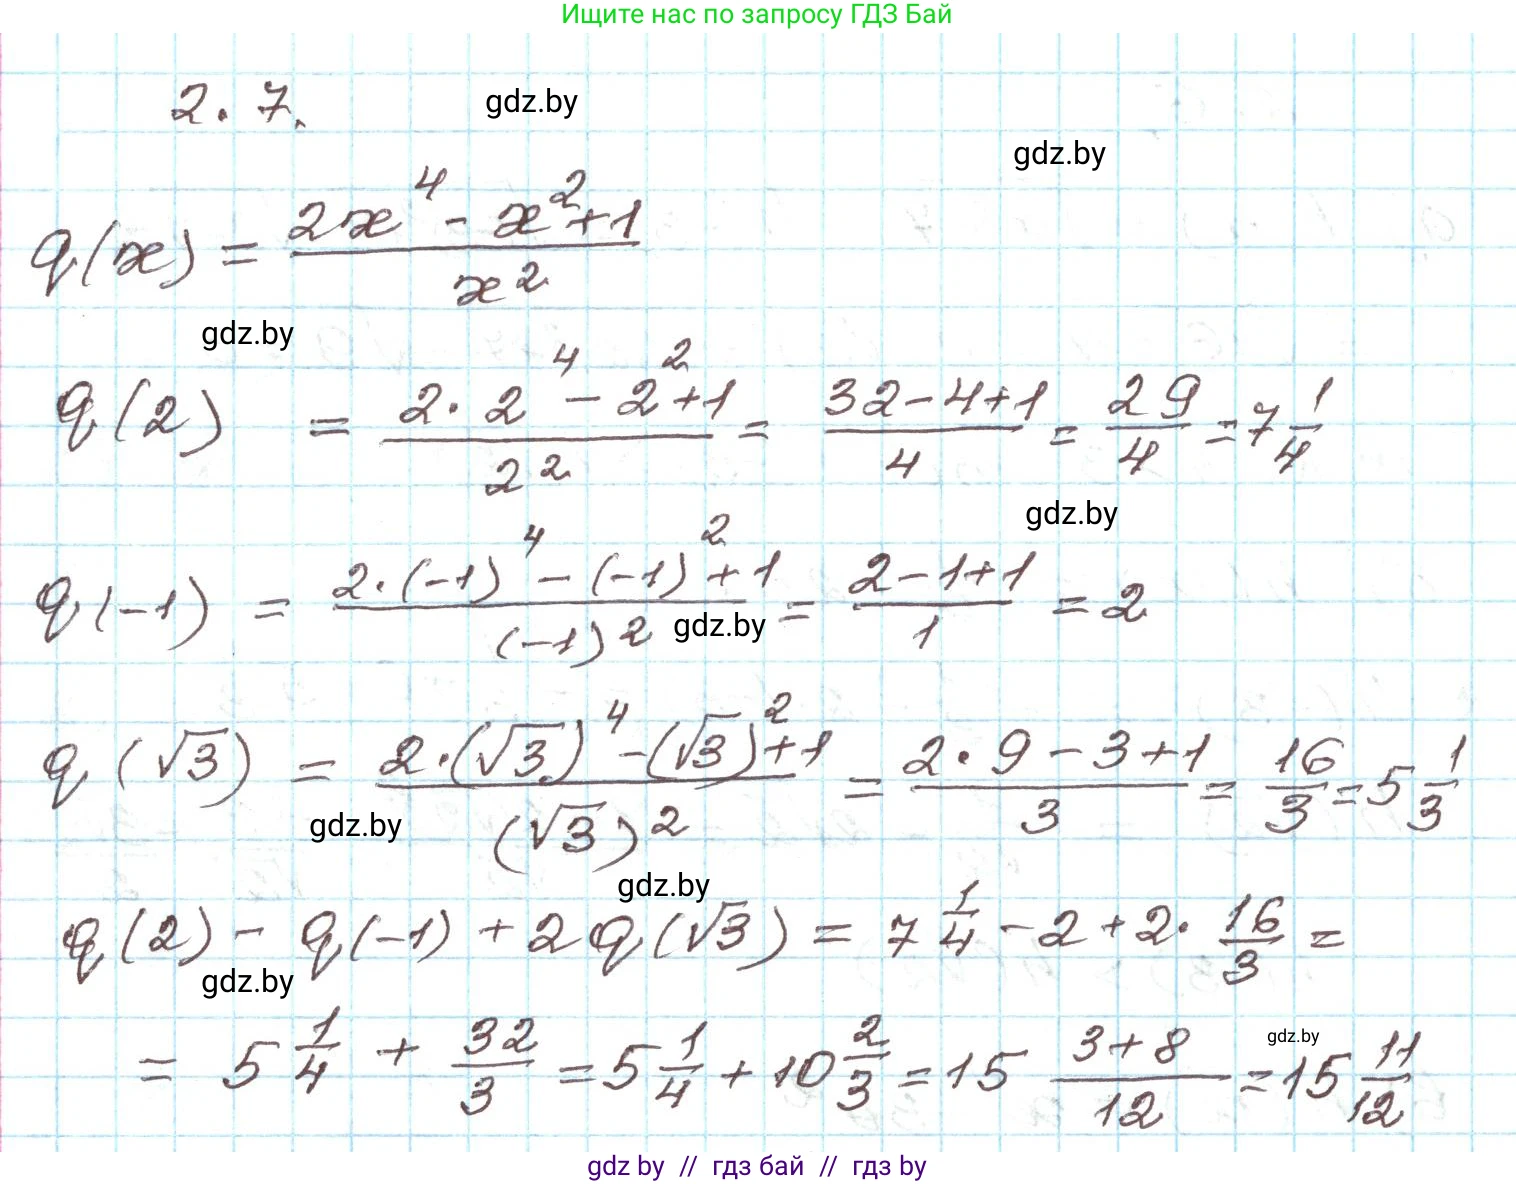 Ищите нас по запросу ГДЗ Бай
2.7. gdz.by
gdz.by
q(x) = (2x⁴ - x² + 1) / x²
gdz.by
q(2) = (2·2⁴ - 2² + 1) / 2² = (32 - 4 + 1) / 4 = 29/4 = 7 1/4
gdz.by
q(-1) = (2·(-1)⁴ - (-1)² + 1) / (-1)² = (2 - 1 + 1) / 1 = 2
gdz.by
q(√3) = (2·(√3)⁴ - (√3)² + 1) / (√3)² = (2·9 - 3 + 1) / 3 = 16/3 = 5 1/3
gdz.by
gdz.by
q(2) - q(-1) + 2q(√3) = 7 1/4 - 2 + 2·16/3 =
gdz.by
= 5 1/4 + 32/3 = 5 1/4 + 10 2/3 = 15 (3+8)/12 = 15 11/12
gdz.by
gdz by // гдз бай // гдз by